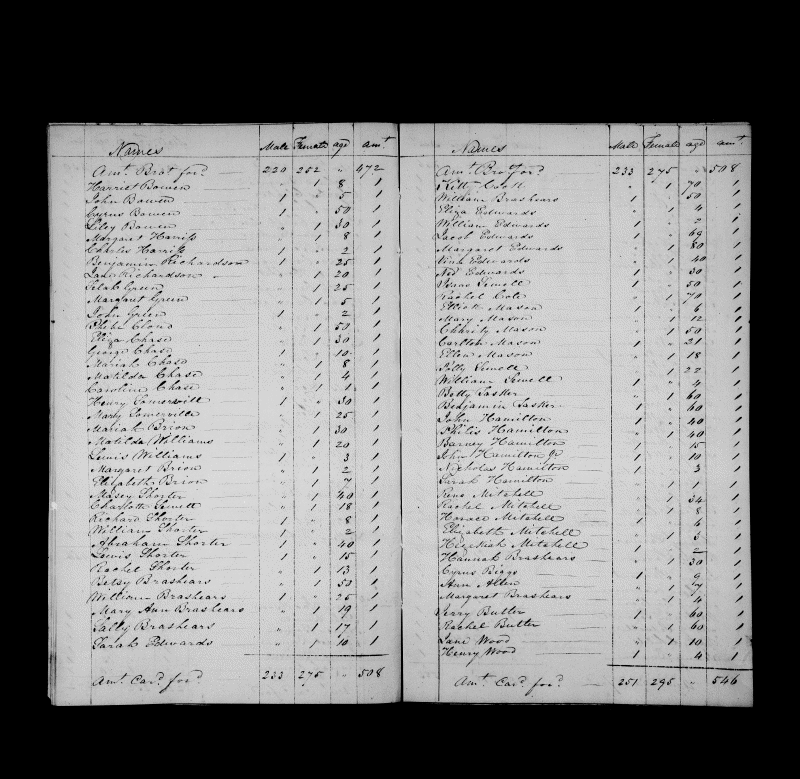 Names Male Female aged amt.
Amt. Brot. ford. 220 252 " 472
Harriet Bowen " 1 8 1
John Bowen 1 " 5 1
Cyrus Bowen 1 " 50 1
Liley Bowen " 1 30 1
Margaret Harriss " 1 8 1
Charles Harriss 1 " 2 1
Benjamin Richardson 1 " 25 1
Jane Richardson " 1 20 1
Green " 1 25 1
Margaret Green " 1 5 1
John Green 1 " 2 1
" 1 50 1
Eliza Chase " 1 30 1
George Chase 1 " 10 1
Mariah Chase " 1 8 1
Matilda Chase " 1 4 1
Caroline Chase " 1 1 1
Henry Somervill 1 " 30 1
Mary Somerville " 1 25 1
Mariah Brion " 1 30 1
Matilda Williams " 1 20 1
Lewis Williams 1 " 3 1
Margaret Brion " 1 2 1
Elizabeth Brion " 1 7 1
Shorter " 1 40 1
Charlotte Sewell " 1 18 1
Richard Shorter 1 " 8 1
William Shorter 1 " 2 1
Abraham Shorter 1 " 40 1
Lewis Shorter 1 " 15 1
Rachel Shorter " 1 13 1
Betsy Brashears " 1 50 1
William Brashears 1 " 25 1
Mary Ann Brashears " 1 19 1
Sally Brashears " 1 17 1
Sarah Edwards " 1 10 1
Amt. Card. ford. 233 275 " 508
Names Male Female aged amt.
Amt. Brot ford. 233 275 " 508
Kitty " 1 70 1
William Brashears 1 " 50 1
Eliza Edwards " 1 4 1
William Edwards 1 " 2 1
Jacob Edwards 1 " 69 1
Margaret Edwards " 1 80 1
Edwards " 1 40 1
Ned Edwards 1 " 30 1
Isaac Sewell 1 " 50 1
Rachel Cole " 1 70 1
Elliott Mason 1 " 6 1
Mary Mason " 1 12 1
Charity Mason " 1 50 1
Carlton Mason 1 " 21 1
Ellen Mason " 1 18 1
Sewell " 1 22 1
William Sewell 1 " 4 1
Betty Lasker " 1 60 1
Benjamin Lasker 1 " 60 1
John Hamilton 1 " 40 1
Philis Hamilton " 1 40 1
Barney Hamilton 1 " 15 1
John Hamilton Jr 1 " 10 1
Nicholas Hamilton 1 " 3 1
Sarah Hamilton " 1 1 1
Mitchell
Rachel Mitchell " 1 34 1
Horace Mitchell 1 "
Elizabeth Mitchell " 1
Hezekiah Mitchell 1 " 2 1
Hannah Brashears " 1 30 1
Cyrus Biggs 1 " 9 1
Ann Allen " 1 1
Margaret Brashears " 1 4 1
Jerry Butler 1 " 60 1
Rachel Butler " 1 60 1
Jane Wood " 1 10 1
Henry Wood 1 " 4 1
Amt. Card. ford. 251 295 " 546